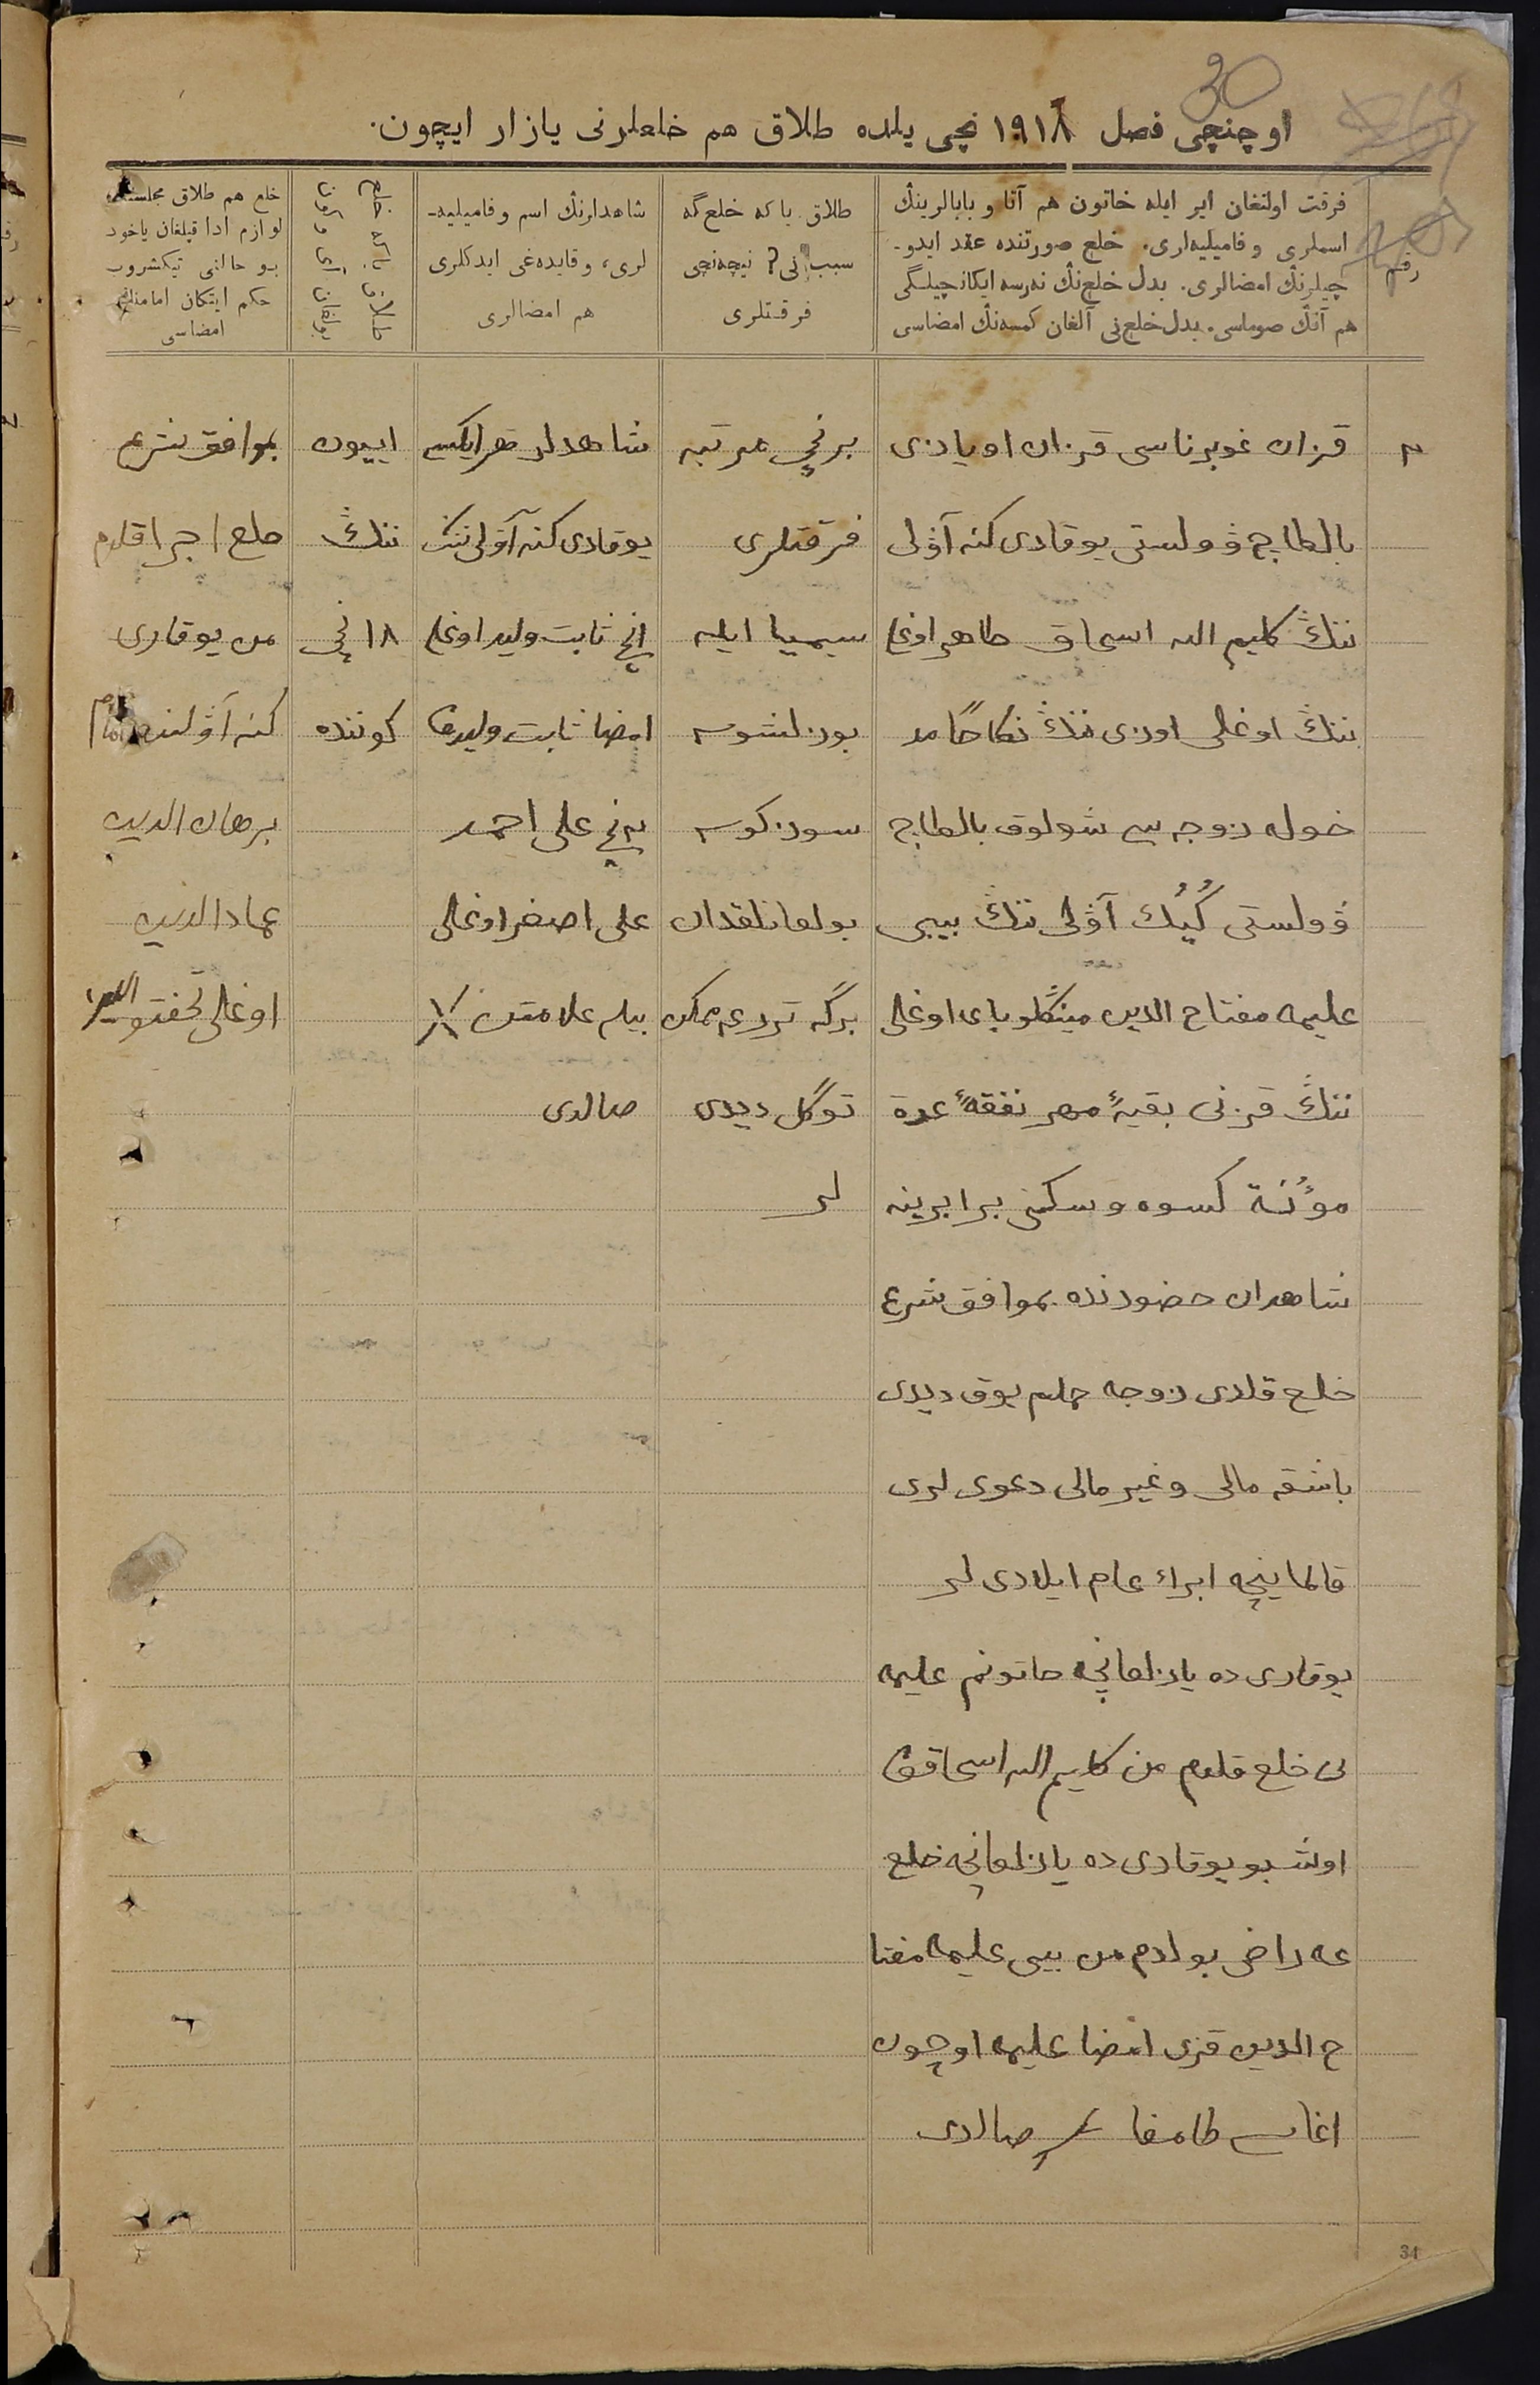 30
اوچنچی فصل ۱۹۱۸ نچی یلده طلاق هم خلعلرنی یازار ایچون.
رقم
فرقت اولنغان ایر ایله خاتون هم آتا و بابالرینڭ
اسملری و فامیلیه‌لری. خلع صورتنده عقد ایدو-
چیلرنڭ امضالری. بدل خلع‌نڭ نه‌رسه ایکانچیلگی
هم آنڭ صوماسی. بدل خلع‌نی آلغان کمسه‌نڭ امضاسی
طلاق یاکه خلع‌گه
سبب نی؟ نیچه‌نچی
فرقتلری
شاهدلرنڭ اسم و فامیلیه-
لری، و قایده‌غی ایدکلری
هم امضالری
خلع یاکه طلاق
کون و آی
بولغان
خلع هم طلاق مجلسنده
لوازم ادا قیلغان یاخود
بو حالنی تیکشروب
حکم ایتکان امامنڭ
امضاسی
۲
قزان غوبرناسی قزان اویازی
بالطاچ ۋولستی یوقاری کنه آۋلی
ننڭ کلیم الله اسحاق طاهر اوغلی
ننڭ اوغلی اوزی ننڭ نکاحًا مد
خوله زوجه سی شولوق بالطاچ
ۋولستی کُیُك آۋلی ننڭ بیبی
علیمه مفتاح الدین مینگلوبای اوغلی
ننڭ قزنی بقیهٔ مهر نفقهٔ عدة
مؤنة کسوه و سکنی برابرینه
شاهدان حضورنده بموافق شرع
خلع قلدی زوجه حملم یوق دیدی
باشقه مالی و غیر مالی دعوی لری
قالماینچه ابراء عام ایلادی لر
یوقاری ده یازلغانچه خاتونم علیمه
نی خلع قلدم من کلیم الله اسحاقف
اوشبو یوقاری ده یازلغانچه خلع
عه راضی بولدم من بیبی علیمه مفتا
ح الدین قزی امضا علیمه اوچون
اغاسی طامغا صالدی
برنچی مرتبه
فرقتلری
سیمیا ایله
بوزلشوب
سوز کوب
بولغانلقدان
برگه تررغه ممکن
توگل دیدی
لر
شاهدلر هر ایکیسی
یوقاری کنه آۋلی ننڭ
۱نچی ثابت ولید اوغلی
امضا ثابت ولیدف
۲نچی علی احمد
علی اصغر اوغلی
بیلم علامتن
صالدی
اییون
ننڭ
۱۸ نچی
کوننده
بموافق شرع
خلع اجرا قلدم
من یوقاری
کنه آۋلننڭ امام
برهان الدین
عماد الدین
اوغلی تحفتوللین
34